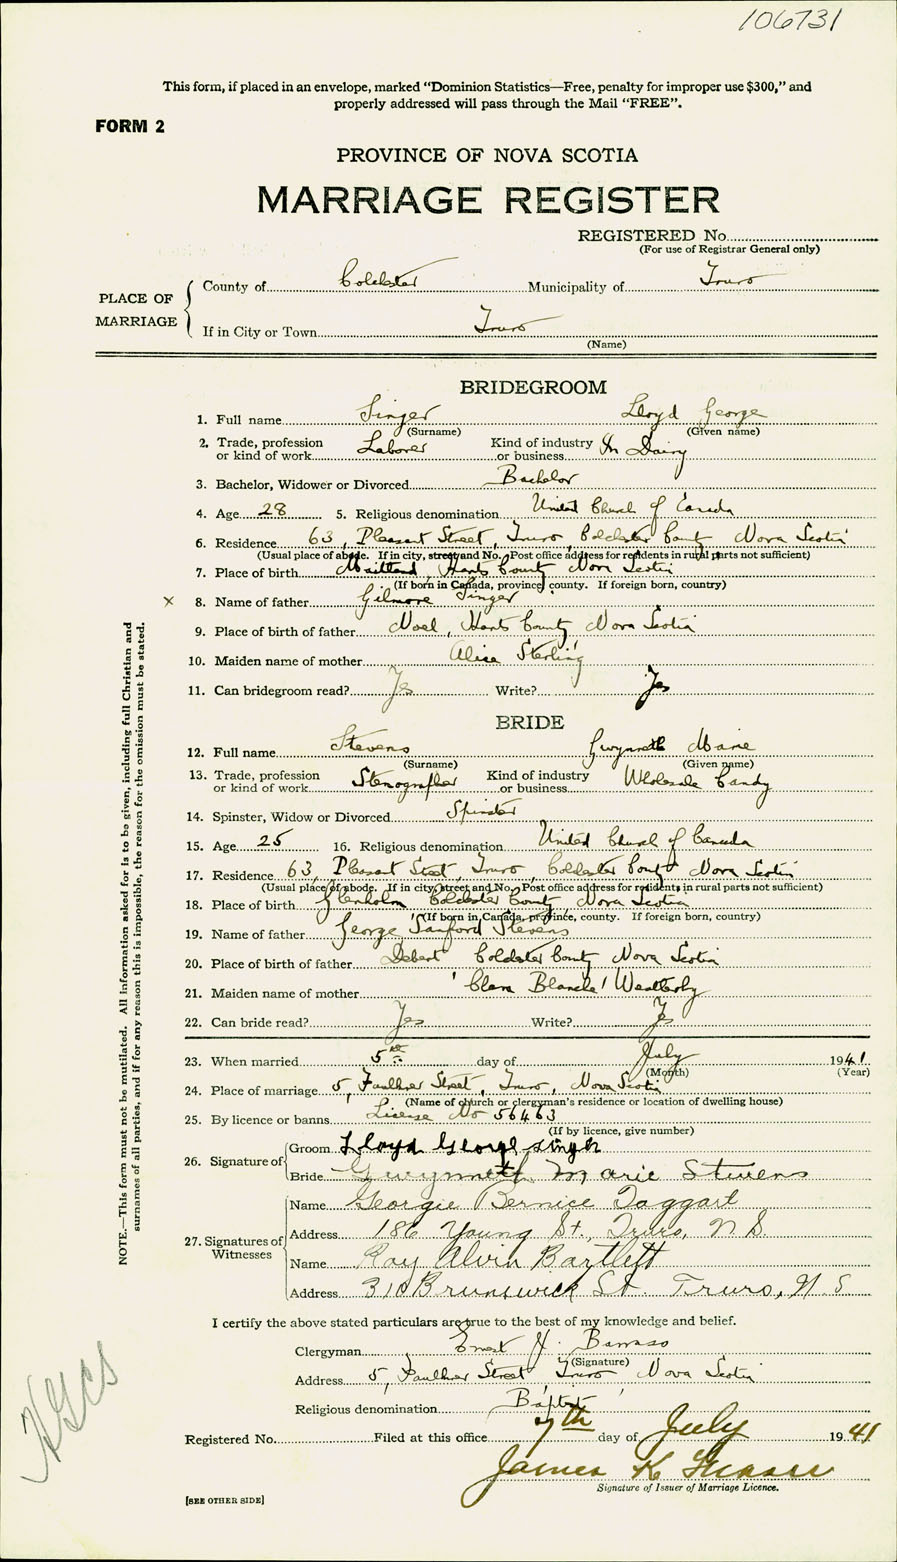 106731
This form, if placed in an envelope, marked “Dominion Statistics—Free, penalty for improper use $300,” and
properly addressed will pass through the Mail “FREE”.
FORM 2
PROVINCE OF NOVA SCOTIA
MARRIAGE REGISTER
REGISTERED No.
(For use of Registrar General only)
PLACE OF MARRIAGE
County of Colchester Municipality of Truro
If in City or Town Truro
(Name)
BRIDEGROOM
1. Full name Singer Lloyd George
(Surname) (Given name)
2. Trade, profession or kind of work Laborer Kind of industry or business In Dairy
3. Bachelor, Widower or Divorced Bachelor
4. Age 28 5. Religious denomination United Church of Canada
6. Residence 63, Pleasant Street, Truro, Colchester County Nova Scotia
(Usual place of abode. If in city, street and No. Post office address for residents in rural parts not sufficient)
7. Place of birth Maitland, Hants County Nova Scotia
(If born in Canada, province, county. If foreign born, country)
x 8. Name of father Gilmore Singer
9. Place of birth of father Noel, Hants County Nova Scotia
10. Maiden name of mother Alice Sterling
11. Can bridegroom read? Yes Write? Yes
BRIDE
12. Full name Stevens Gwynneth Marie
(Surname) (Given name)
13. Trade, profession or kind of work Stenographer Kind of industry or business Wholesale Candy
14. Spinster, Widow or Divorced Spinster
15. Age 25 16. Religious denomination United Church of Canada
17. Residence 63, Pleasant Street, Truro, Colchester County Nova Scotia
(Usual place of abode. If in city, street and No. Post office address for residents in rural parts not sufficient)
18. Place of birth Glenholm Colchester County Nova Scotia
(If born in Canada, province, county. If foreign born, country)
19. Name of father George Sanford Stevens
20. Place of birth of father Debert Colchester County Nova Scotia
21. Maiden name of mother Clara Blanche Weatherby
22. Can bride read? Yes Write? Yes
23. When married 5th day of July 1941
(Month) (Year)
24. Place of marriage 5, Faulkner Street, Truro, Nova Scotia
(Name of church or clergyman's residence or location of dwelling house)
25. By licence or banns License No 56463
(If by licence, give number)
26. Signature of
Groom Lloyd George Singer
Bride Gwynneth Marie Stevens
27. Signatures of Witnesses
Name Georgie Bernice Taggart
Address 186 Young St., Truro, N.S.
Name Ray Alvin Bartlett
Address 310 Brunswick St. Truro, N.S.
I certify the above stated particulars are true to the best of my knowledge and belief.
Clergyman Ernest J.
(Signature)
Address 5, Faulkner Street Truro Nova Scotia
Religious denomination Baptist
Registered No. Filed at this office 7th day of July 1941
James K
Signature of Issuer of Marriage Licence.
[SEE OTHER SIDE]
NOTE.—This form must not be mutilated. All information asked for is to be given, including full Christian and
surnames of all parties, and if for any reason this is impossible, the reason for the omission must be stated.